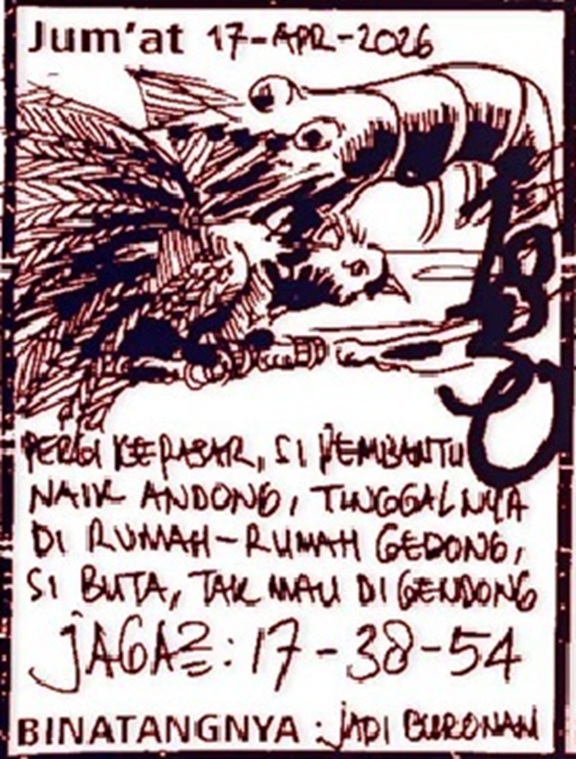 Jum'at 17-APR-2026
PERGI KEPASAR, SI PEMBANTU
NAIK ANDONG, TINGGALNYA
DI RUMAH-RUMAH GEDONG,
SI BUTA, TAK MAU DI GENDONG
JAGA2 : 17-38-54
BINATANGNYA : JADI BURONAN